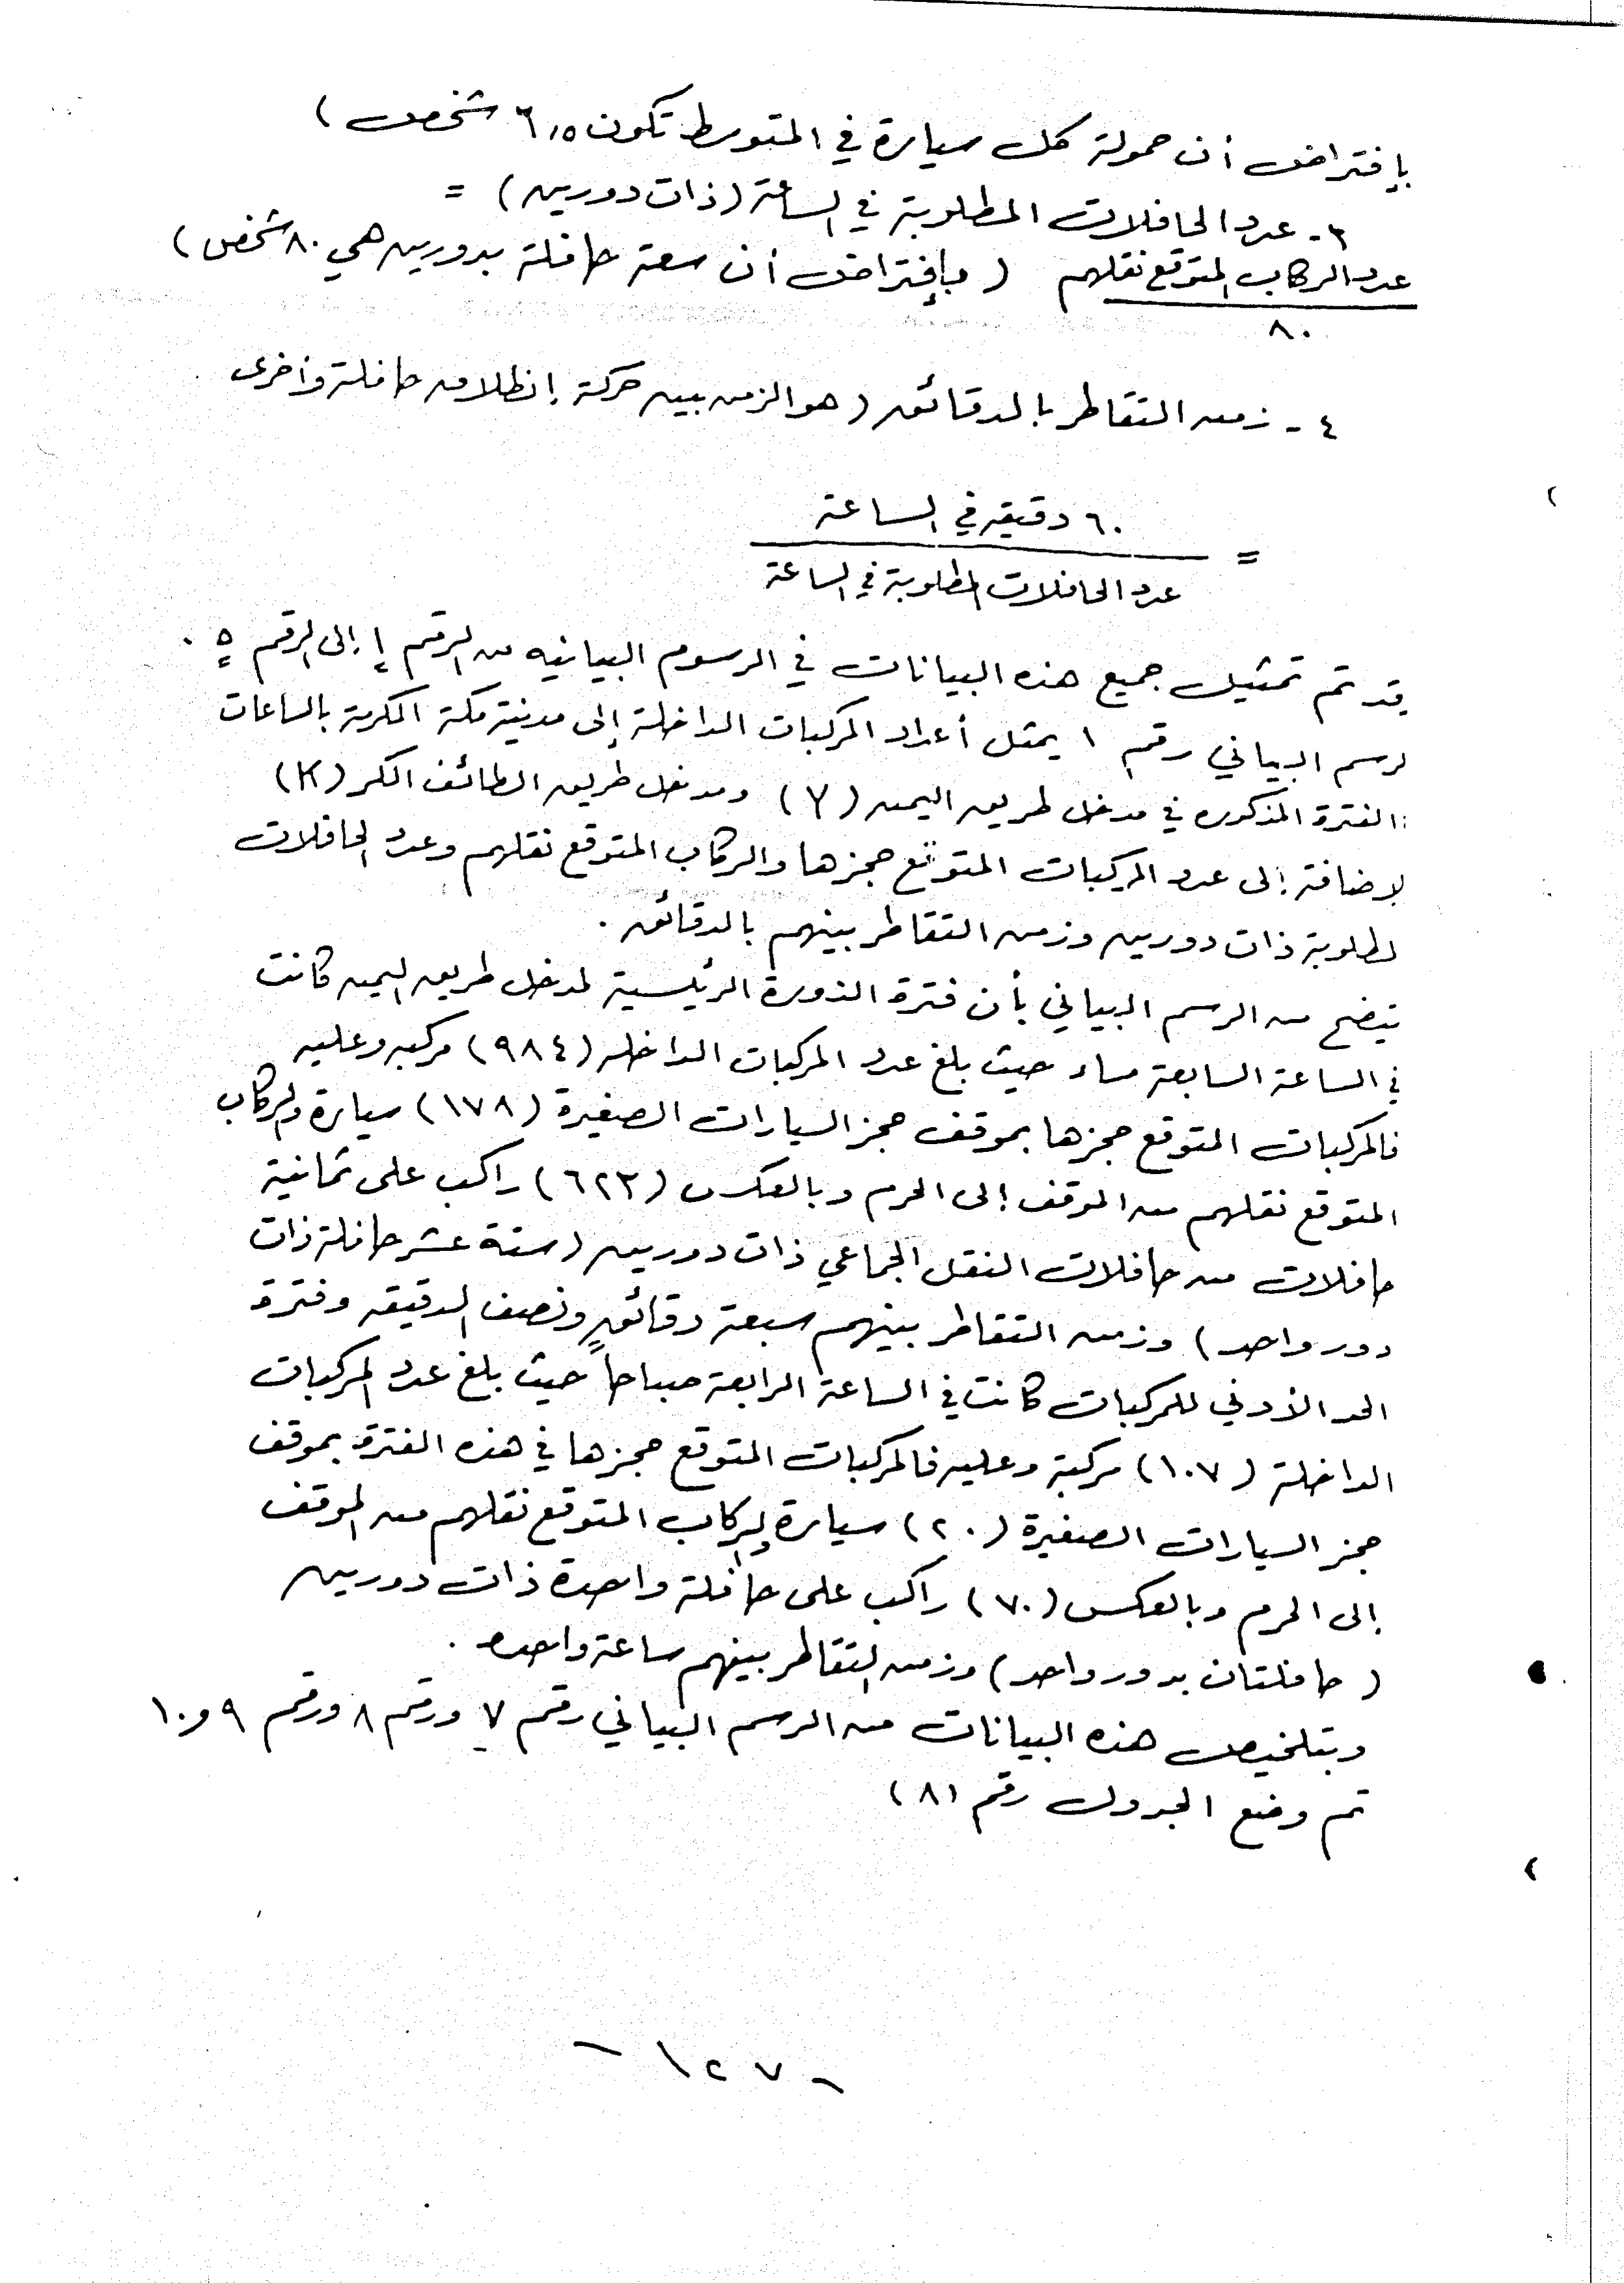 بإفتراض أن حمولة كل سيارة في المتوسط تكون ٣,٥ شخص)
٣- عدد الحافلات المطلوبة في الساعة (ذات دورين) =
عدد الركاب المتوقع نقلهم (بإفتراض أن سعة حافلة بدورين هي ٨٠ شخص)
٨٠
٤- زمن التقاطر بالدقائق (هو الزمن بين حركة إنطلاق حافلة وأخرى
= ٦٠ دقيقه في الساعة
عدد الحافلات المطلوبة في الساعة
قد تم تمثيل جميع هذه البيانات في الرسوم البيانيه من الرقم ١ إلى الرقم ٥ .
لرسم البياني رقم ١ يمثل أعداد المركبات الداخلة إلى مدينة مكة المكرمة بالساعات
الفترة المذكوره في مدخل طريق اليمن (٧) ومدخل طريق الطائف الكر (K)
لإضافة إلى عدد المركبات المتوقع حجزها والركاب المتوقع نقلهم وعدد الحافلات
لطلوبة ذات دورين وزمن التقاطر بينهم بالدقائق .
يتضح من الرسم البياني بأن فترة الذروة الرئيسية لمدخل طريق اليمن كانت
في الساعة السابعة مساء حيث بلغ عدد المركبات الداخله (٩٨٤) مركبه وعليه
فالمركبات المتوقع حجزها بموقف حجز السيارات الصغيرة (١٧٨) سيارة والركاب
المتوقع نقلهم من الموقف إلى الحرم وبالعكس (٦٢٣) راكب على ثمانية
حافلات من حافلات النقل الجماعي ذات دورين (ستة عشر حافلة ذات
دور واحد) وزمن التقاطر بينهم سبعة دقائق ونصف الدقيقه وفترة
الحد الأدنى للمركبات كانت في الساعة الرابعة صباحاً حيث بلغ عدد المركبات
الداخلة (١٠٧) مركبة وعليه فالمركبات المتوقع حجزها في هذه الفترة بموقف
حجز السيارات الصغيرة (٢٠) سيارة والركاب المتوقع نقلهم من الموقف
إلى الحرم وبالعكس (٧٠) راكب على حافلة واحدة ذات دورين
(حافلتان بدور واحد) وزمن التقاطر بينهم ساعة واحده .
وبتلخيص هذه البيانات من الرسم البياني رقم ٧ ورقم ٨ ورقم ٩ و١٠
تم وضع الجدول رقم (٨)
- ١٢٧ -